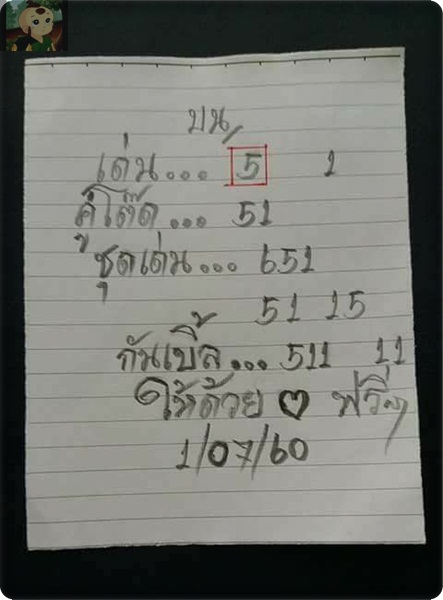 บน/
เด่น... 5 1
คู่โต๊ด... 51
ชุดเด่น... 651
51 15
กันเบิ้ล... 511 11
ให้ด้วย ฟรีๆ
1/07/60